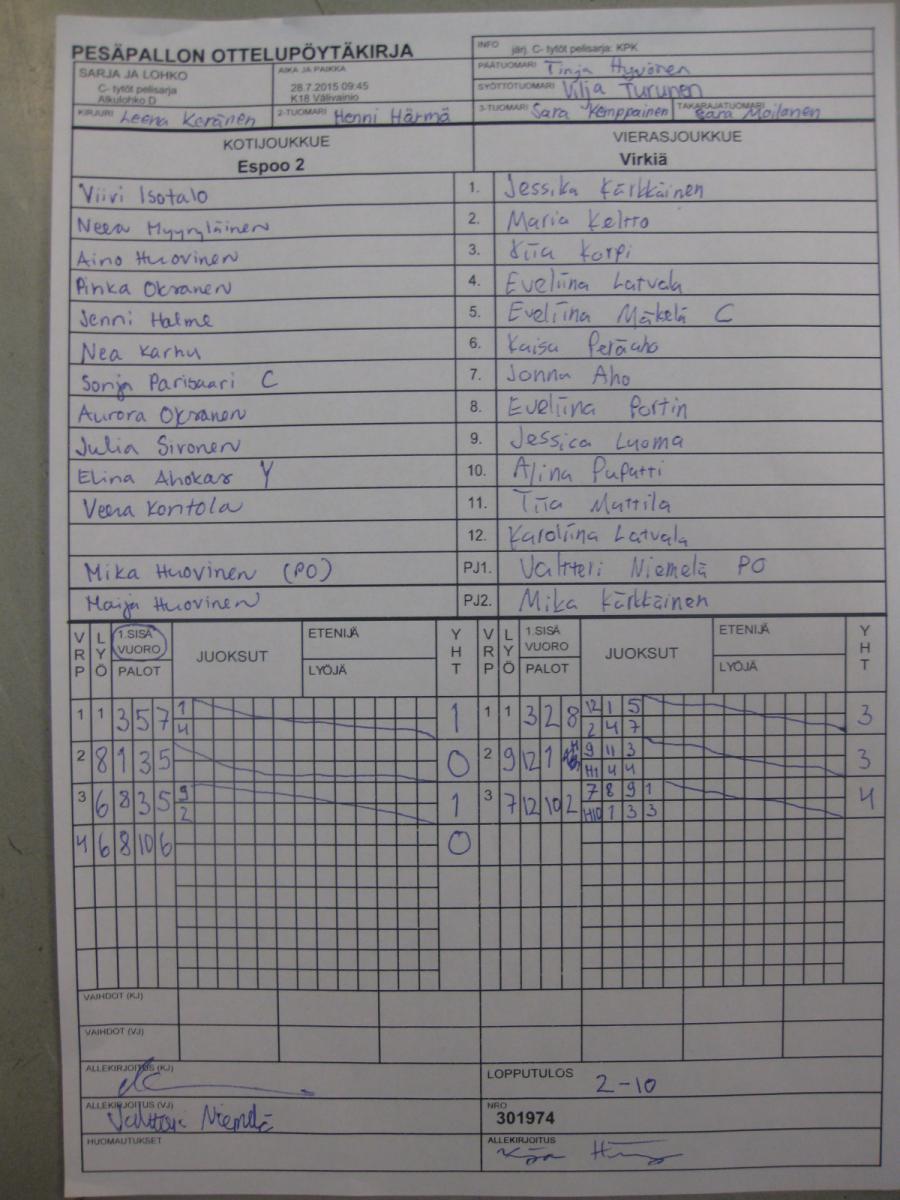 PESÄPALLON OTTELUPÖYTÄKIRJA
INFO järj. C- tytöt pelisarja: KPK
SARJA JA LOHKO
C- tytöt pelisarja
Alkulohko D
AIKA JA PAIKKA
28.7.2015 09:45
K18 Välivainio
PÄÄTUOMARI Tinja Hyvönen
SYÖTTÖTUOMARI Vilja Turunen
KIRJURI Leena Keränen 2-TUOMARI Henni Härmä 3-TUOMARI Sara Kemppainen TAKARAJATUOMARI Sara Moilanen
KOTIJOUKKUE VIERASJOUKKUE
Espoo 2 Virkiä
Viivi Isotalo 1. Jessika Kärkkäinen
Neea Myyryläinen 2. Maria Keltto
Aino Huovinen 3. Kiia Korpi
Pinka Oksanen 4. Eveliina Latvala
Jenni Halme 5. Eveliina Mäkelä C
Nea Karhu 6. Kaisa Peräaho
Sonja Parisaari C 7. Jonna Aho
Aurora Oksanen 8. Eveliina Portin
Julia Sironen 9. Jessica Luoma
Elina Ahokas Y 10. Alina Pupatti
Veera Kontola 11. Tiia Mattila
12. Karoliina Latvala
Mika Huovinen (PO) PJ1. Valtteri Niemelä PO
Maija Huovinen PJ2. Mika Kärkkäinen
VRP LYÖ 1.SISÄ VUORO PALOT JUOKSUT ETENIJÄ LYÖJÄ YHT VRP LYÖ 1.SISÄ VUORO PALOT JUOKSUT ETENIJÄ LYÖJÄ YHT
1 1 3 5 7 1 1 1 1 3 2 8 12 1 5 3
4 2 4 7
2 8 1 3 5 0 2 9 12 1 9 11 3 3
H1 4 4
3 6 8 3 5 9 1 3 7 12 10 2 7 8 9 1 4
2 H10 1 3 3
4 6 8 10 6 0
VAIHDOT (KJ)
VAIHDOT (VJ)
ALLEKIRJOITUS (KJ)
LOPPUTULOS 2-10
ALLEKIRJOITUS (VJ) Valtteri Niemelä
NRO
301974
HUOMAUTUKSET
ALLEKIRJOITUS